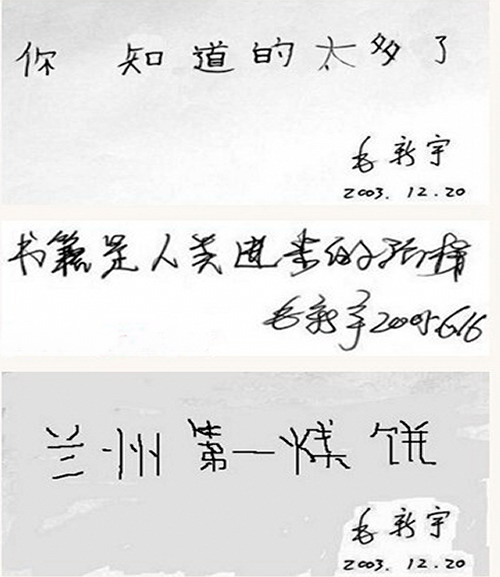 你知道的太多了
毛新宇
2003.12.20
书籍是人类进步的阶梯
毛新宇 2005.6.16
兰州第一烧饼
毛新宇
2003.12.20